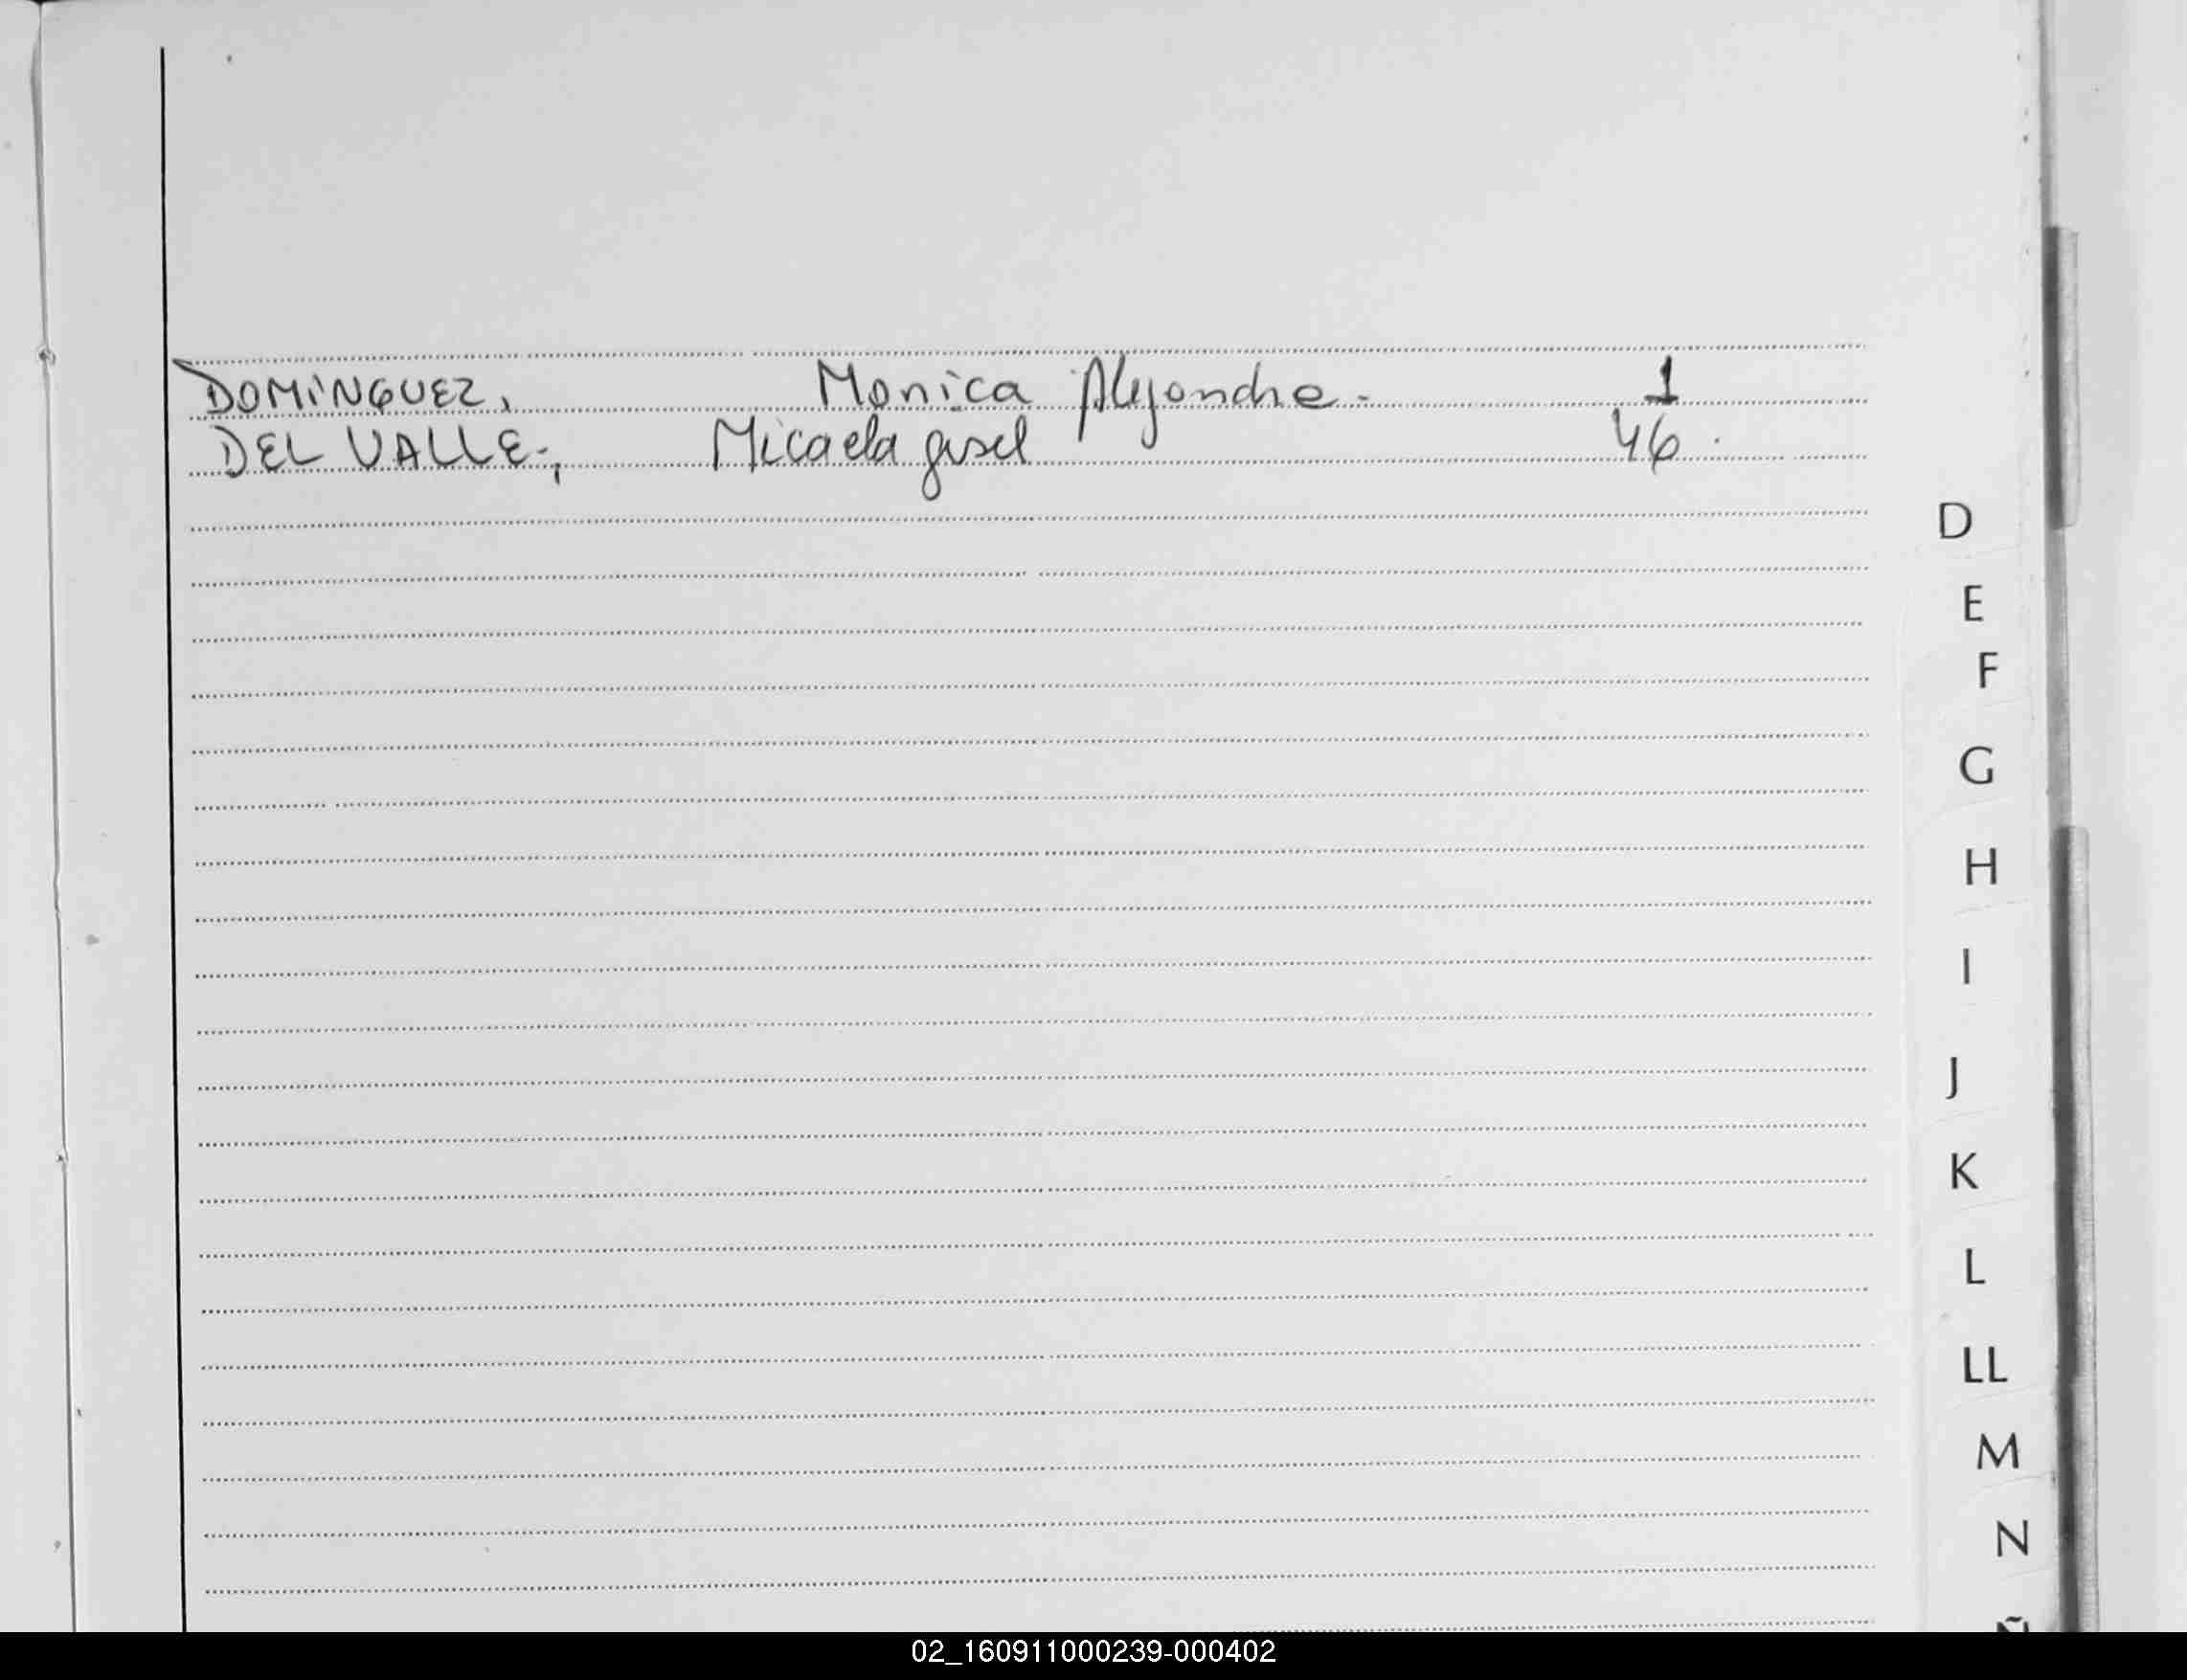 DOMINGUEZ, Monica Alejandra - 1
DEL VALLE-, Micaela gisel 46.
D
E
F
G
H
I
J
K
L
LL
M
N
Ñ
02_160911000239-000402